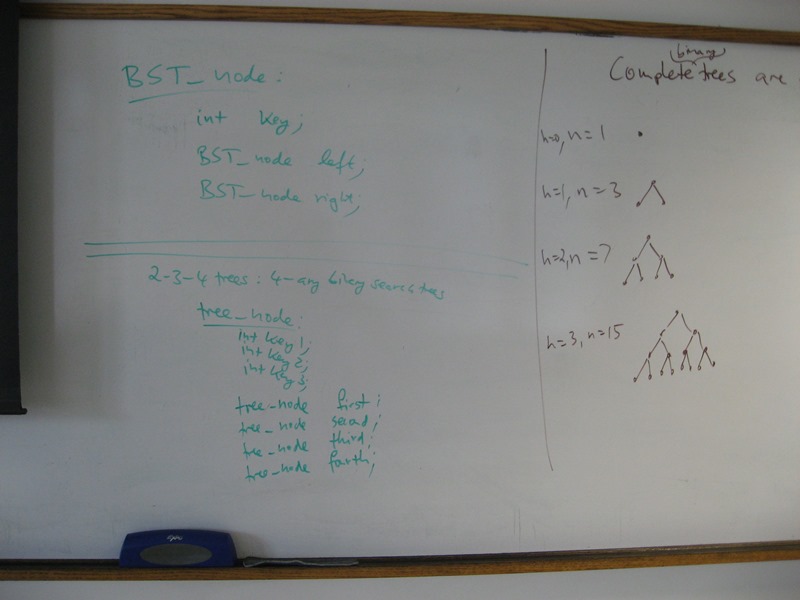 BST_node:
int key;
BST_node left;
BST_node right;
2-3-4 trees: 4-ary binary search trees
tree_node:
int key1;
int key2;
int key3;
tree_node first;
tree_node second;
tree_node third;
tree_node fourth;
binary
Complete trees are
h=0, n=1
h=1, n=3
h=2, n=7
h=3, n=15
EXPO